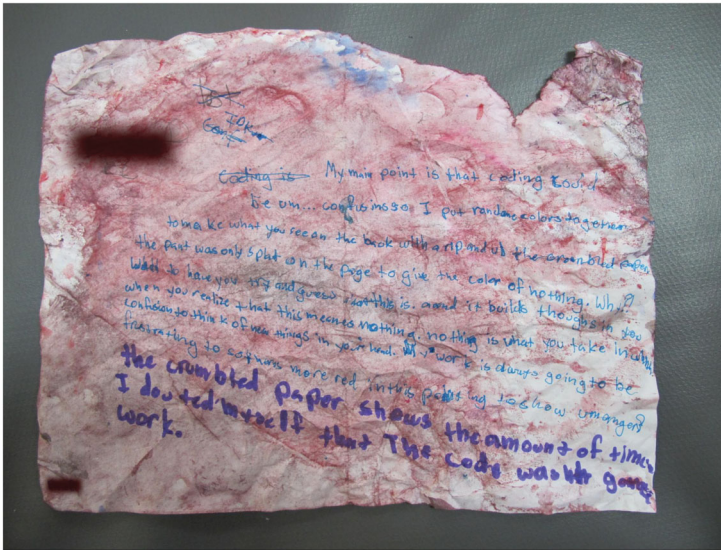 IDK
Coding is My main point is that coding
be um... confusing so I put random colors together
to make what you see on the back with a rip, and the crumbled paper
the paint was only splat on the page to give the color of nothing. Wh
want to have you try and guess what this is. and it builds thoughts in you
when you realize that this means nothing. nothing is what you take in
confusion to think of new things in your head. My work is always going to be
frustrating to more red in this painting to show
the crumbled paper shows the amount of times
I douted mytself that The code wasnt
work.